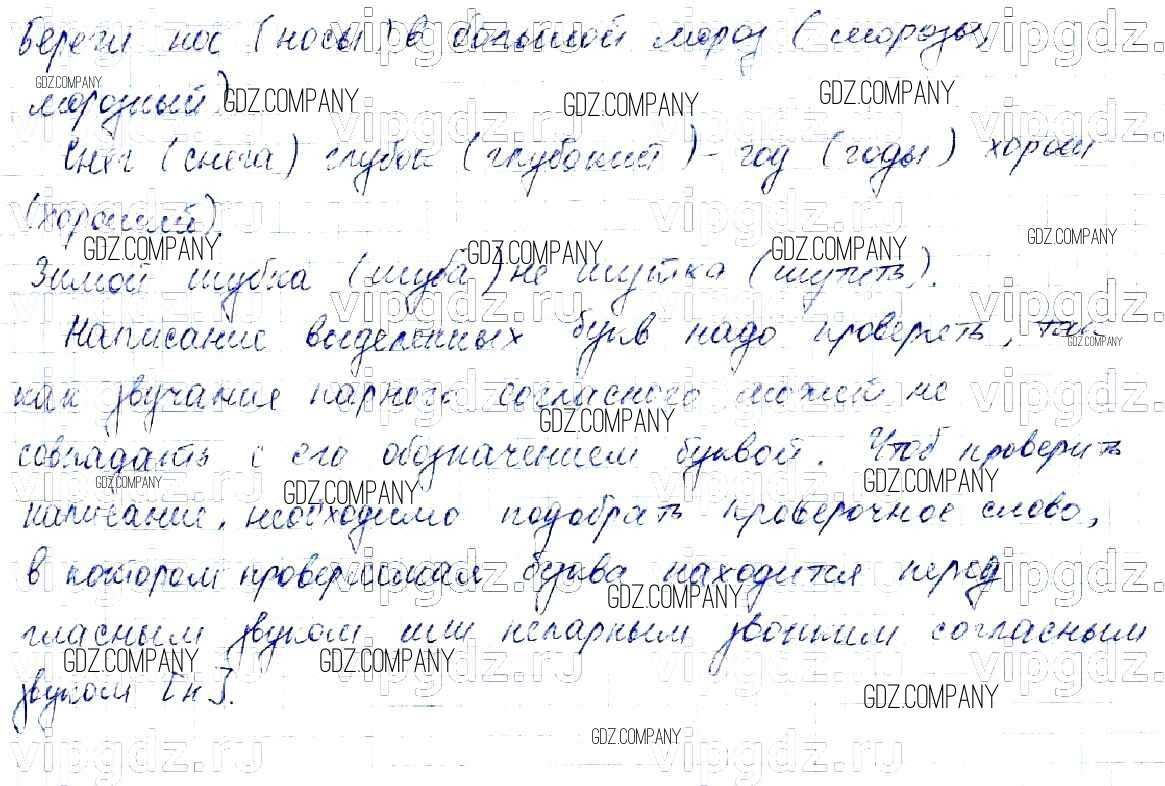 Береги нос (носы) в большой мороз (морозы,
морозный)
Снег (снега) глубок (глубокий) - год (годы) хорош
(хороший).
Зимой шубка (шуба) не шутка (шутить).
Написание выделенных букв надо проверять, так
как звучание парного согласного может не
совпадать с его обозначением буквой. Чтоб проверить
написание, необходимо подобрать проверочное слово,
в котором проверяемая буква находится перед
гласным звуком или непарным звонким согласным
звуком [н].